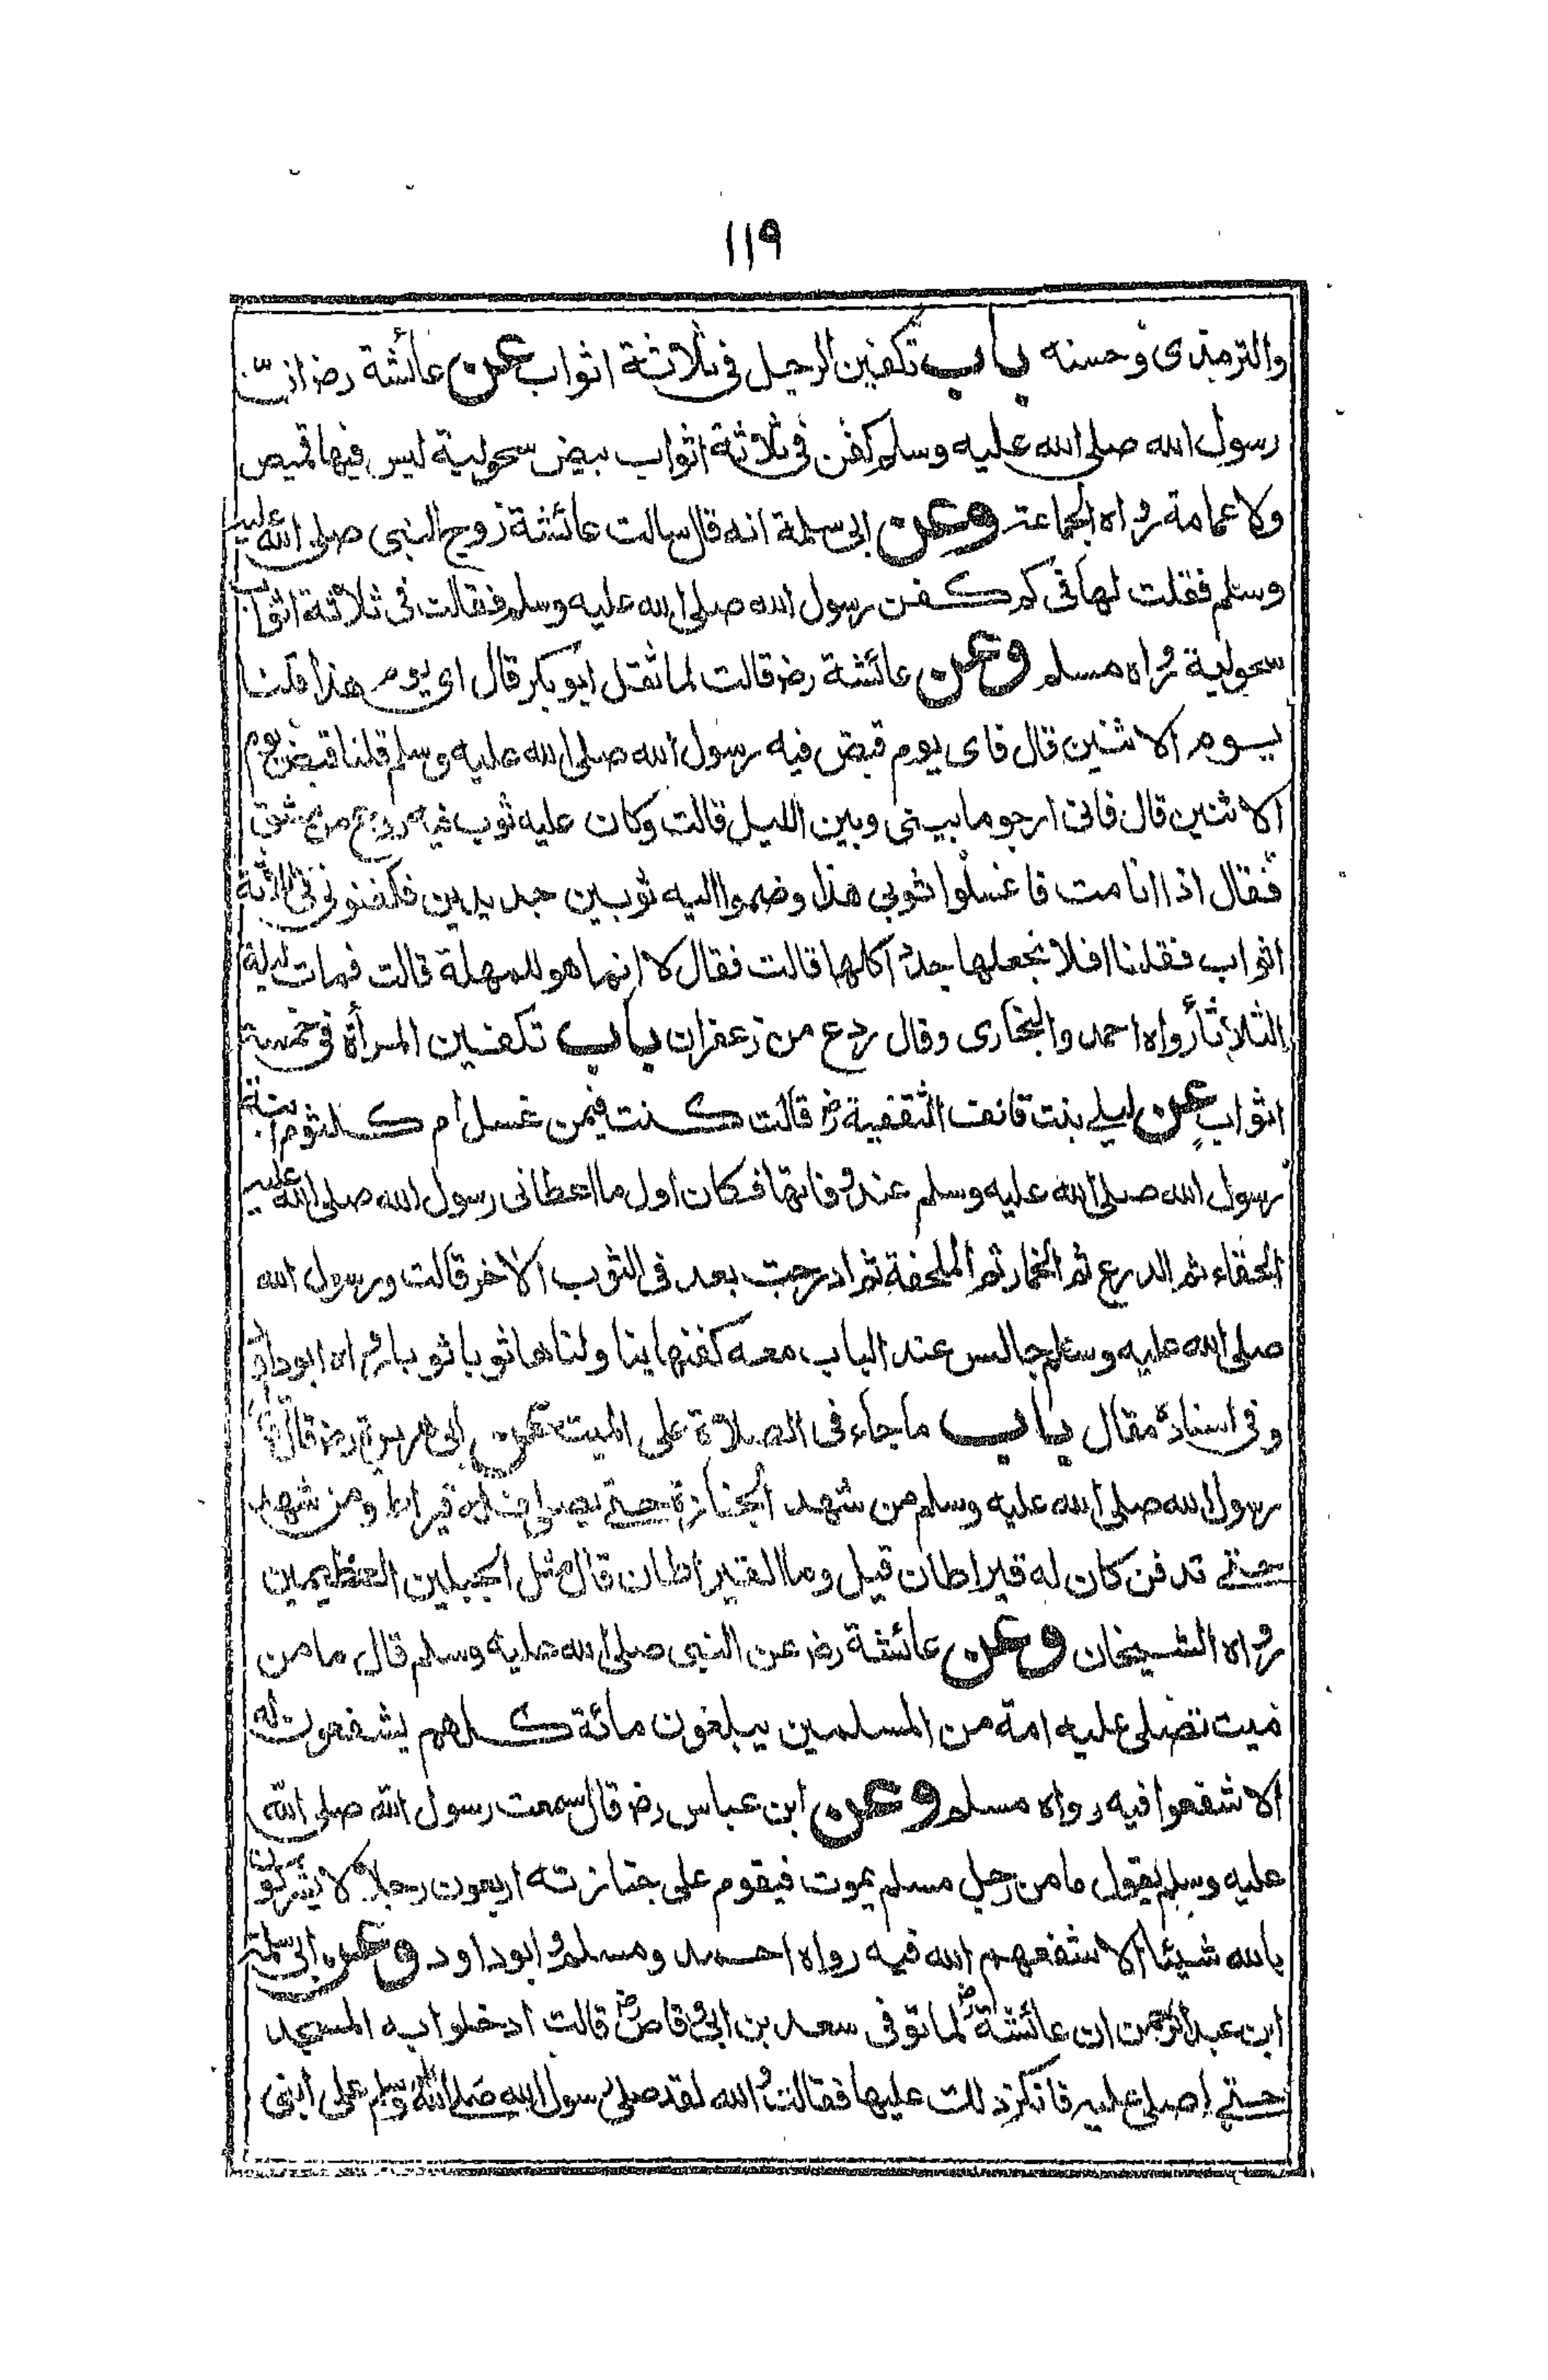 ١١٩
والترمذى وحسنه باب تكفين الرجل فى ثلاثة اثواب عن عائشة رضـ ان
رسول الله صلى الله عليه وسلم كفن فى ثلاثة اثواب بيض سحولية ليس فيها قميص
ولا عمامة رواه الجماعة وعن ابى سلمة انه قال سالت عائشة زوج النبى صلى الله عليه
وسلم فقلت لها فى كم كفن رسول الله صلى الله عليه وسلم فقالت فى ثلاثة اثواب
سحولية رواه مسلم وعن عائشة رضـ قالت لما ثقل ابو بكر قال اى يوم هذا قلنا
يوم الاثنين قال فاى يوم قبض فيه رسول الله صلى الله عليه وسلم قلنا قبض يوم
الاثنين قال فانى ارجو ما بينى وبين الليل قالت وكان عليه ثوب فيه ردع من مشق
فقال اذا انا مت فاغسلوا ثوبى هذا وضموا اليه ثوبين جديدين فكفنونى فى ثلاثة
اثواب فقلنا افلا نجعلها جددا كلها قالت فقال لا انما هو للمهلة قالت فمات ليلة
الثلاثا رواه احمد والبخارى وقال ردع من زعفران باب تكفين المرأة فى خمسة
اثواب عن ليلے بنت قانف الثقفية رضـ قالت كنت فيمن غسل ام كلثوم ابنة
رسول الله صلى الله عليه وسلم عند وفاتها فكان اول ما اعطانى رسول الله صلى الله عليه
الحقاء ثم الدرع ثم الخمار ثم الملحفة ثم ادرجت بعد فى الثوب الاخر قالت ورسول الله
صلى الله عليه وسلم جالس عند الباب معه كفنها يناولناها ثوبا ثوبا رواه ابو داؤد
وفى اسناده مقال باب ما جاء فى الصلاة على الميت عن ابى هريرة رضـ قال قال
رسول الله صلى الله عليه وسلم من شهد الجنازة حتے يصلى فله قيراط ومن شهد
حتے تدفن كان له قيراطان قيل وما القيراطان قال مثل الجبلين العظيمين
رواه الشيخان وعن عائشة رضـ عن النبى صلى الله عليه وسلم قال ما من
ميت تصلى عليه امة من المسلمين يبلغون مائة كلهم يشفعون له
الا شفعوا فيه رواه مسلم وعن ابن عباس رضـ قال سمعت رسول الله صلى الله
عليه وسلم يقول ما من رجل مسلم يموت فيقوم على جنازته اربعون رجلا لا يشركون
بالله شيئا الا شفعهم الله فيه رواه احمد ومسلم وابو داود وعن ابى سلمة
ابن عبد الرحمن ان عائشة رضـ لما توفى سعد بن ابى وقاص رضـ قالت ادخلوا به المسجد
حتے اصلى عليه فانكر ذلك عليها فقالت والله لقد صلى رسول الله صلى الله عليه وسلم على ابنى